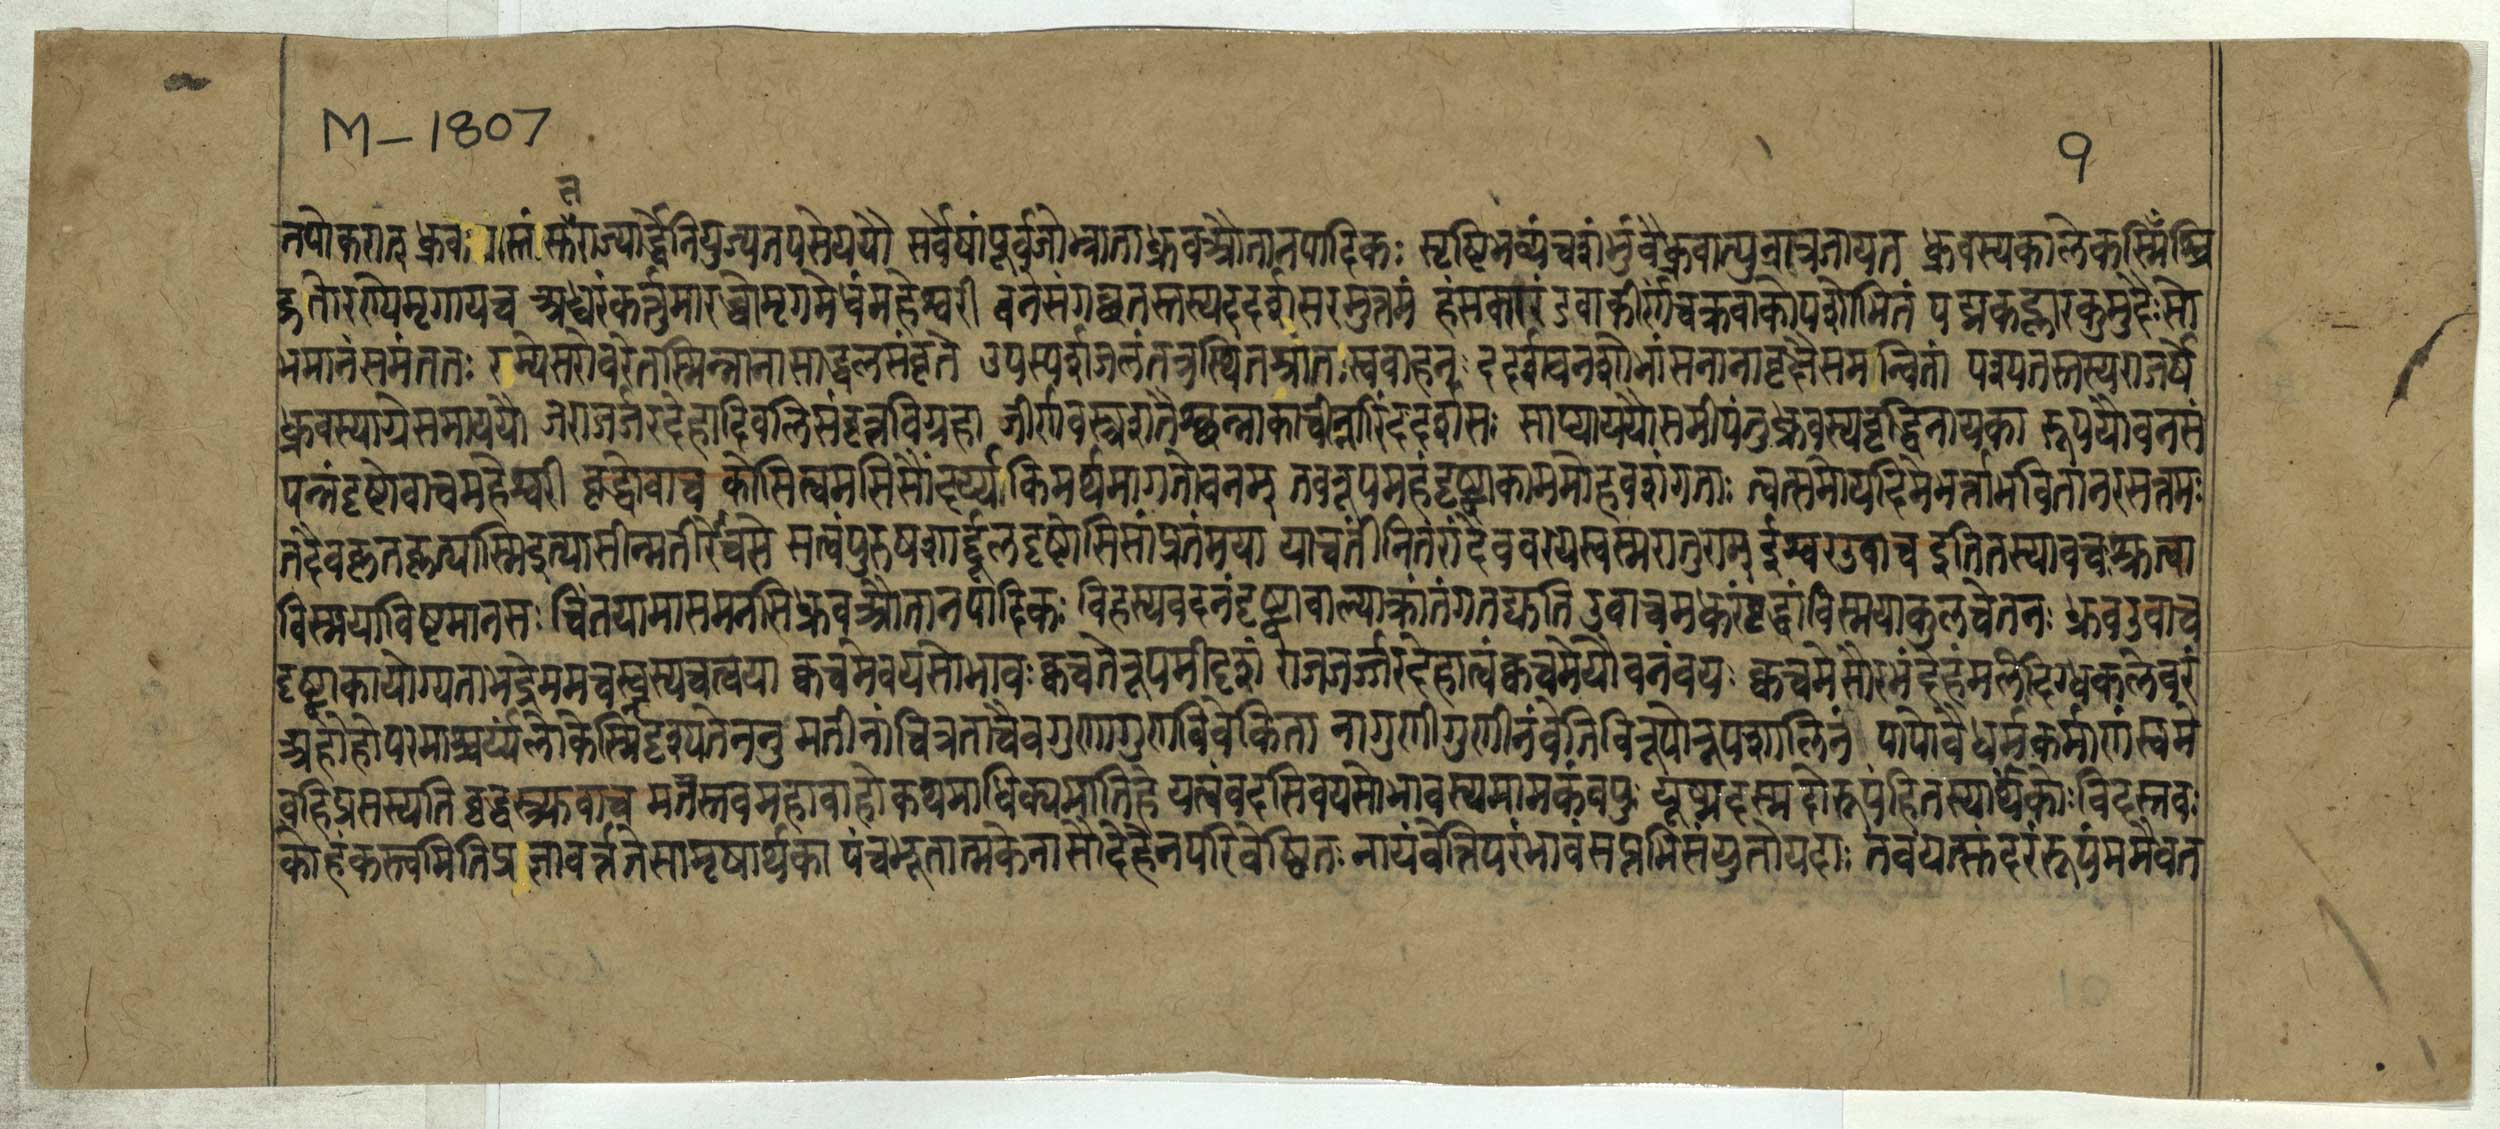 M-1807
१
न
तपोकरोत् ध्रुव स्तां स्तैराज्यार्द्धेनियुज्यतपसेययौ सर्वेषांपूर्वजोभ्राताध्रुवऔतानपादिकः सृष्टिंभव्यंचशंभुंवैध्रुवात्पुत्रात्रजायत ध्रुवस्यकालेकस्मिंश्चि
द्गतोरण्येमृगायच अध्वरंकर्त्तुमारब्धोमृगमेधंमहेश्वरी वनेसंगछतस्तस्यददर्शसरमुत्तमं हंसकारंडवाकीर्णंचक्रवाकोपशोभितं पद्मकह्लारकुमुदैःसो
भमानंसमंततः रम्येसरोवरेतस्मिन्नानासाद्वलसंवृते उपस्पर्शजलंतत्रस्थितश्रांतःस्ववाहनः ददर्शवनशोभांसनानावृक्षैसमन्वितां पश्यतस्तस्यराजर्षे
ध्रुवस्याग्रेसमाययौ जराजर्जरदेहादिवलिसंवृत्तविग्रहा जीर्णवस्त्रशतैश्छन्नाकाचीन्नारिंददर्शसः साप्याययौसमीपंतुध्रुवस्यवृद्धिनायका रूपयौवनसं
पन्नंदृष्टोवाचमहेश्वरी वृद्धोवाच कोसित्वमसिसौंदर्य्यकिमर्थमागतोवनम् तवरूपमहंदृष्ट्वाकाममोहवशंगताः त्वत्समोयदिमेभर्त्ताभवितानरसत्तमः
तदैवकृतकृत्यास्मिइत्यासीन्मतीरूर्चसे सत्वंपुरुषशार्द्दूलदृष्टोसिसांप्रतंमया याचंतींनितरांदैववरयेस्वस्मरातुराम् ईश्वरउवाच इतितस्यावचःश्रुत्वा
विस्मयाविष्टमानसः चिंतयामासमनसिध्रुवऔतानपादिकः विहस्यवदनंदृष्ट्वावाल्याक्रांतंगतद्युति उवाचमधुरंवृद्धांविस्मयाकुलचेतनः ध्रुवउवाच
दृष्ट्वाकायोग्यताभद्रेममचस्वस्यचत्वया क्वचमेवयसोभावःक्वचतेरूपमीदृशं राजजर्ज्जरदेहात्वंक्वचमेयौवनंवयः क्वचमेसौरभंदेहंमलदिग्धकलेवरं
अहोहोपरमाश्चर्य्यलोकेस्मिंदृश्यतेननु मतीनांचित्रताचैवगुणागुणविवेकिता नागुणीगुणीनंवेतिविरूपोरूपशालिनं पापोवैधर्मकर्माणंस्वम
वहिप्रसस्यति वृद्धस्त्र्युवाच मतैस्तवमहावाहोकथमाधिक्यभातिहे यत्वंवदसिवयसोभावस्यमामकंवपुः यूष्मदस्मदोरूपंहितस्यार्थकोःविदूस्तवः
कोहंकस्त्वमितिप्र ज्ञावर्त्ततेसामृषार्थका पंचभूतात्मकेनासौदेहेनपरिवेष्टितः नायंवेत्तिपरंभावंसप्तभिसंयुतोयदाः तवयत्सुंदरंरूपंममैवत